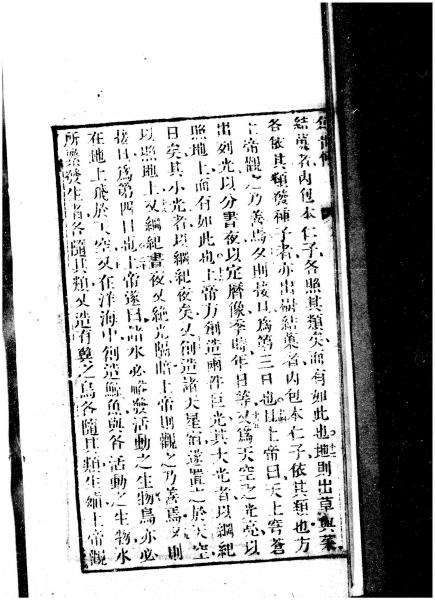 結菓者內包本仁子各照其類矣而有如此也地則出草與菜
各依其類發種子者亦出樹結菓者內包本仁子依其類也方
上帝觀之乃善焉夕則接日為第三日也且上帝曰天上穹蒼
出列光以分晝夜以定曆像季時年日等又為天空之光亮以
照地上而有如此也上帝方創造兩件巨光其大光者以綱紀
日矣其小光者以綱紀夜矣又創造諸天星宿遂置之於天空
以照地上又綱紀晝夜又絕光隔暗上帝則觀之乃善焉夕則
接日為第四日也上帝遂曰諸水必略發活動之生物鳥亦必
在地上飛於天空又在洋海中創造鯨魚與各活動之生物水
所發生者各隨其類又造有翼之鳥各隨其類生緬上帝觀